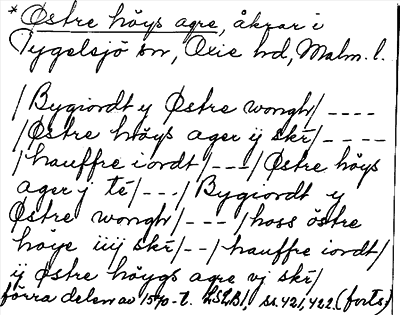 *Østre höys agre, åkrar i
Tygelsjö sn, Oxie hd, Malm. l.
/Bygiordt y Østre wongh/ ----
/Østre höys ager ij skr̄/ ----
/hauffre iordt/ ---/Østre höys
ager j te̅/---/Bygiordt y
Østre wongh/ ---/hoss östre
höye iiij skr̄/--/hauffre iordt/
ij Østre höygs agre vj skr̄/
förra delen av 1570-t. LSLB1, ss. 421, 422. (forts)